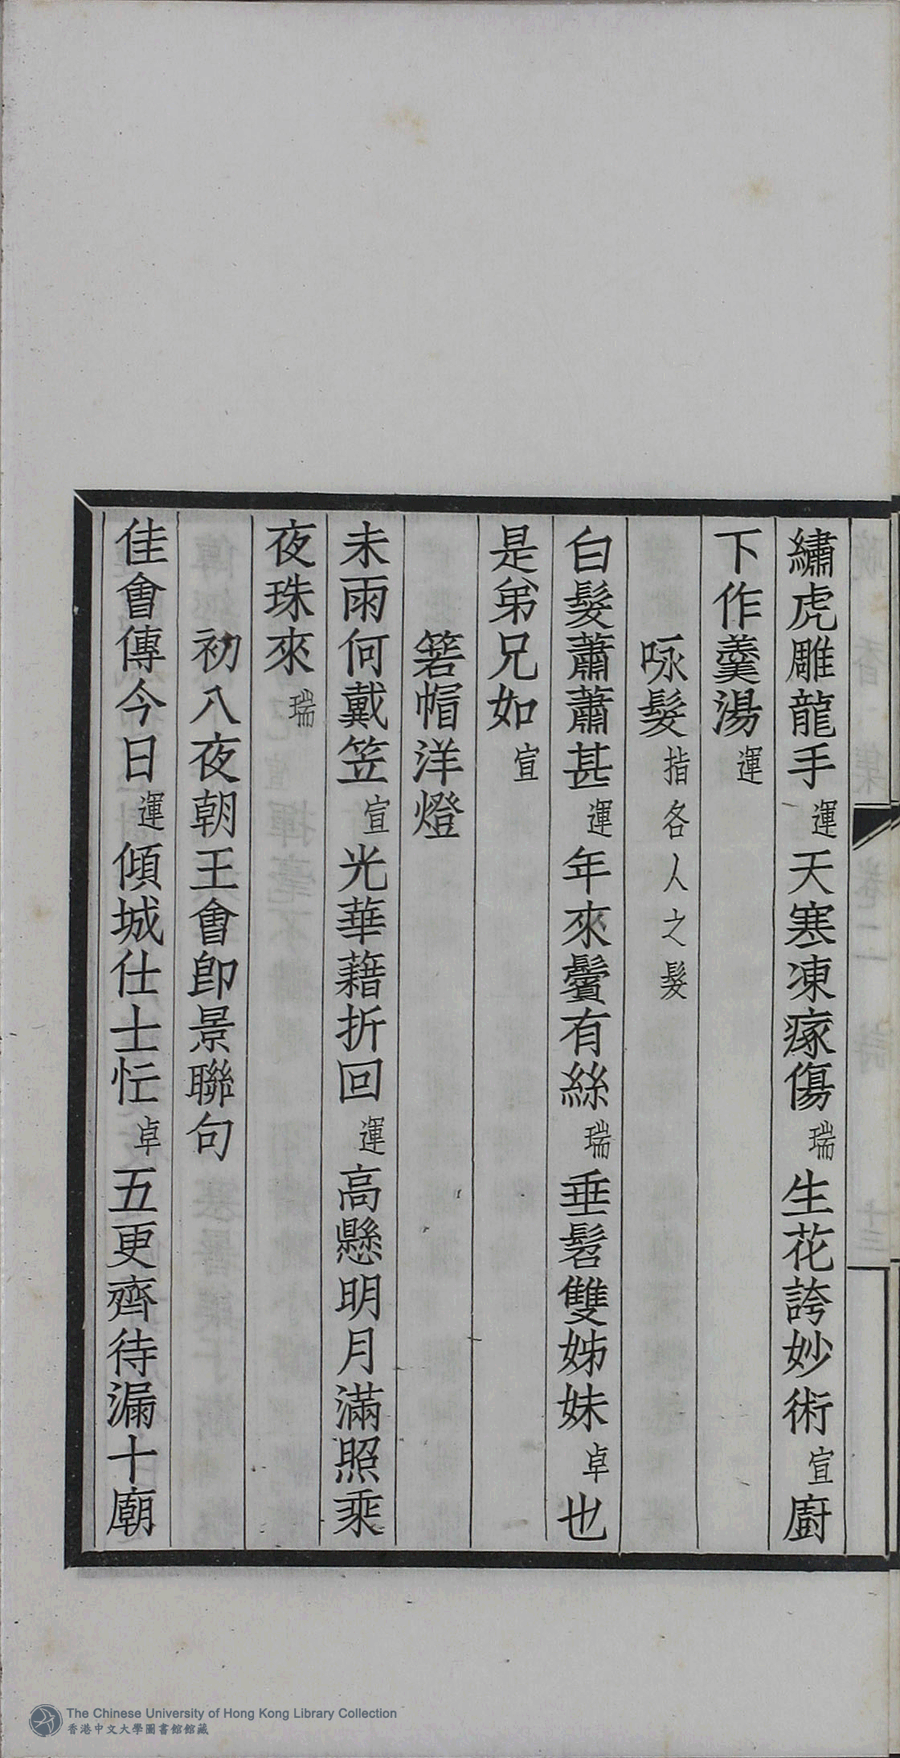 繡虎雕龍手運天寒凍瘃傷瑞生花誇妙術宣廚
下作羹湯運
咏髮指各人之髮
白髮蕭蕭甚運年來鬢有絲瑞垂髫雙姊妹卓也
是弟兄如宣
箬帽洋燈
未雨何戴笠宣光華藉折回運高懸明月滿照乘
夜珠來瑞
初八夜朝王會卽景聯句
佳會傳今日運傾城仕士忙卓五更齊待漏十廟
The Chinese University of Hong Kong Library Collection
香港中文大學圖書館館藏